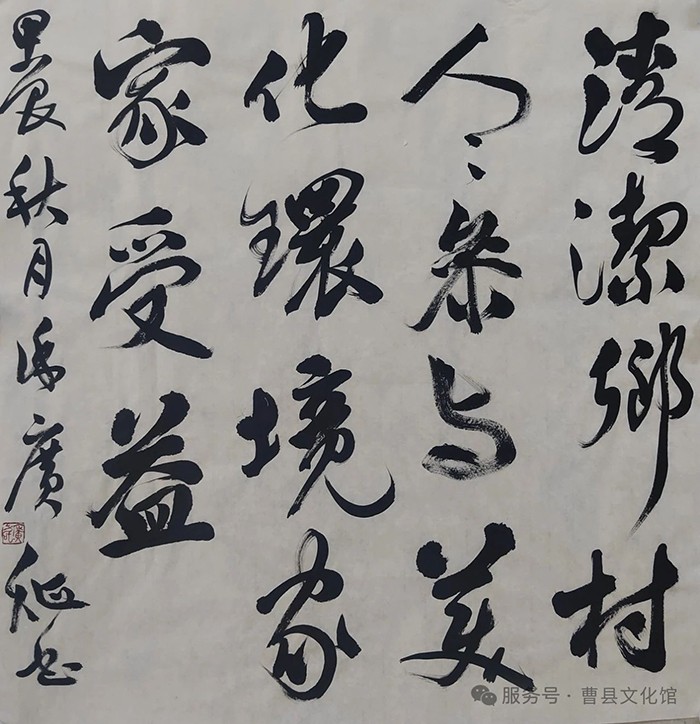 清潔鄉村
人〻参与美
化環境家
家受益
甲辰秋月 廣 书
服务号 · 曹县文化馆